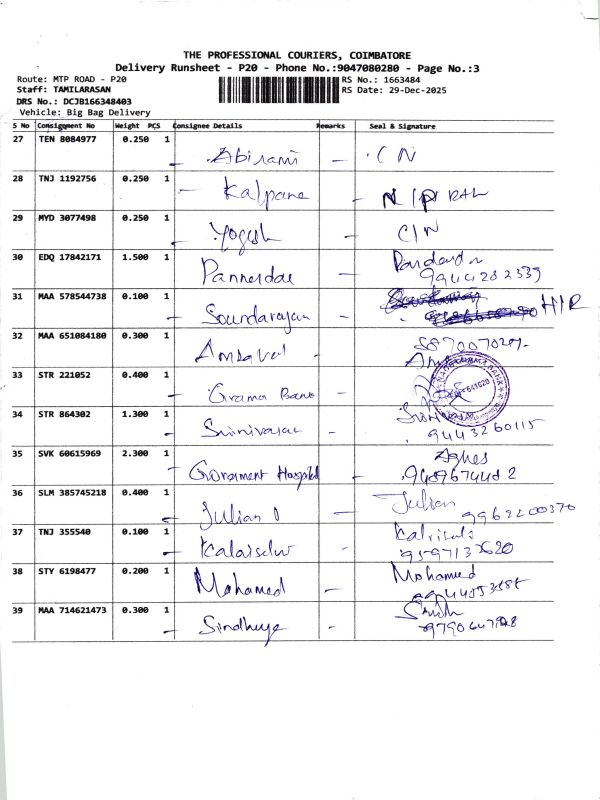 THE PROFESSIONAL COURIERS, COIMBATORE
Delivery Runsheet - P20 - Phone No.:9047080280 - Page No.:3
Route: MTP ROAD - P20 RS No.: 1663484
Staff: TAMILARASAN RS Date: 29-Dec-2025
DRS No.: DCJB166348403
Vehicle: Big Bag Delivery
S No Consignment No Weight PCS Consignee Details Remarks Seal & Signature
27 TEN 8084977 0.250 1 Abirami - C N
28 TNJ 1192756 0.250 1 Kalpana - N/P
29 MYD 3077498 0.250 1 Yogesh - C/N
30 EDQ 17842171 1.500 1 Pannerdae -
31 MAA 578544738 0.100 1 Soundarajan -
32 MAA 651084180 0.300 1 -
33 STR 221052 0.400 1 Grama Bank - 641020
34 STR 864302 1.300 1 Srinivasan - 9443260115
35 SVK 60615969 2.300 1 Government Hospital - Agnes
36 SLM 385745218 0.400 1 Julian D - Julian 9962200370
37 TNJ 355540 0.100 1 Kalaiselvi -
38 STY 6198477 0.200 1 Mohamed - Mohamed
39 MAA 714621473 0.300 1 Sindhuya -